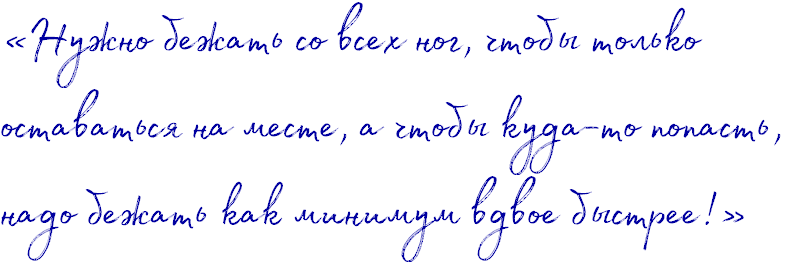 «Нужно бежать со всех ног, чтобы только
оставаться на месте, а чтобы куда-то попасть,
надо бежать как минимум вдвое быстрее!»